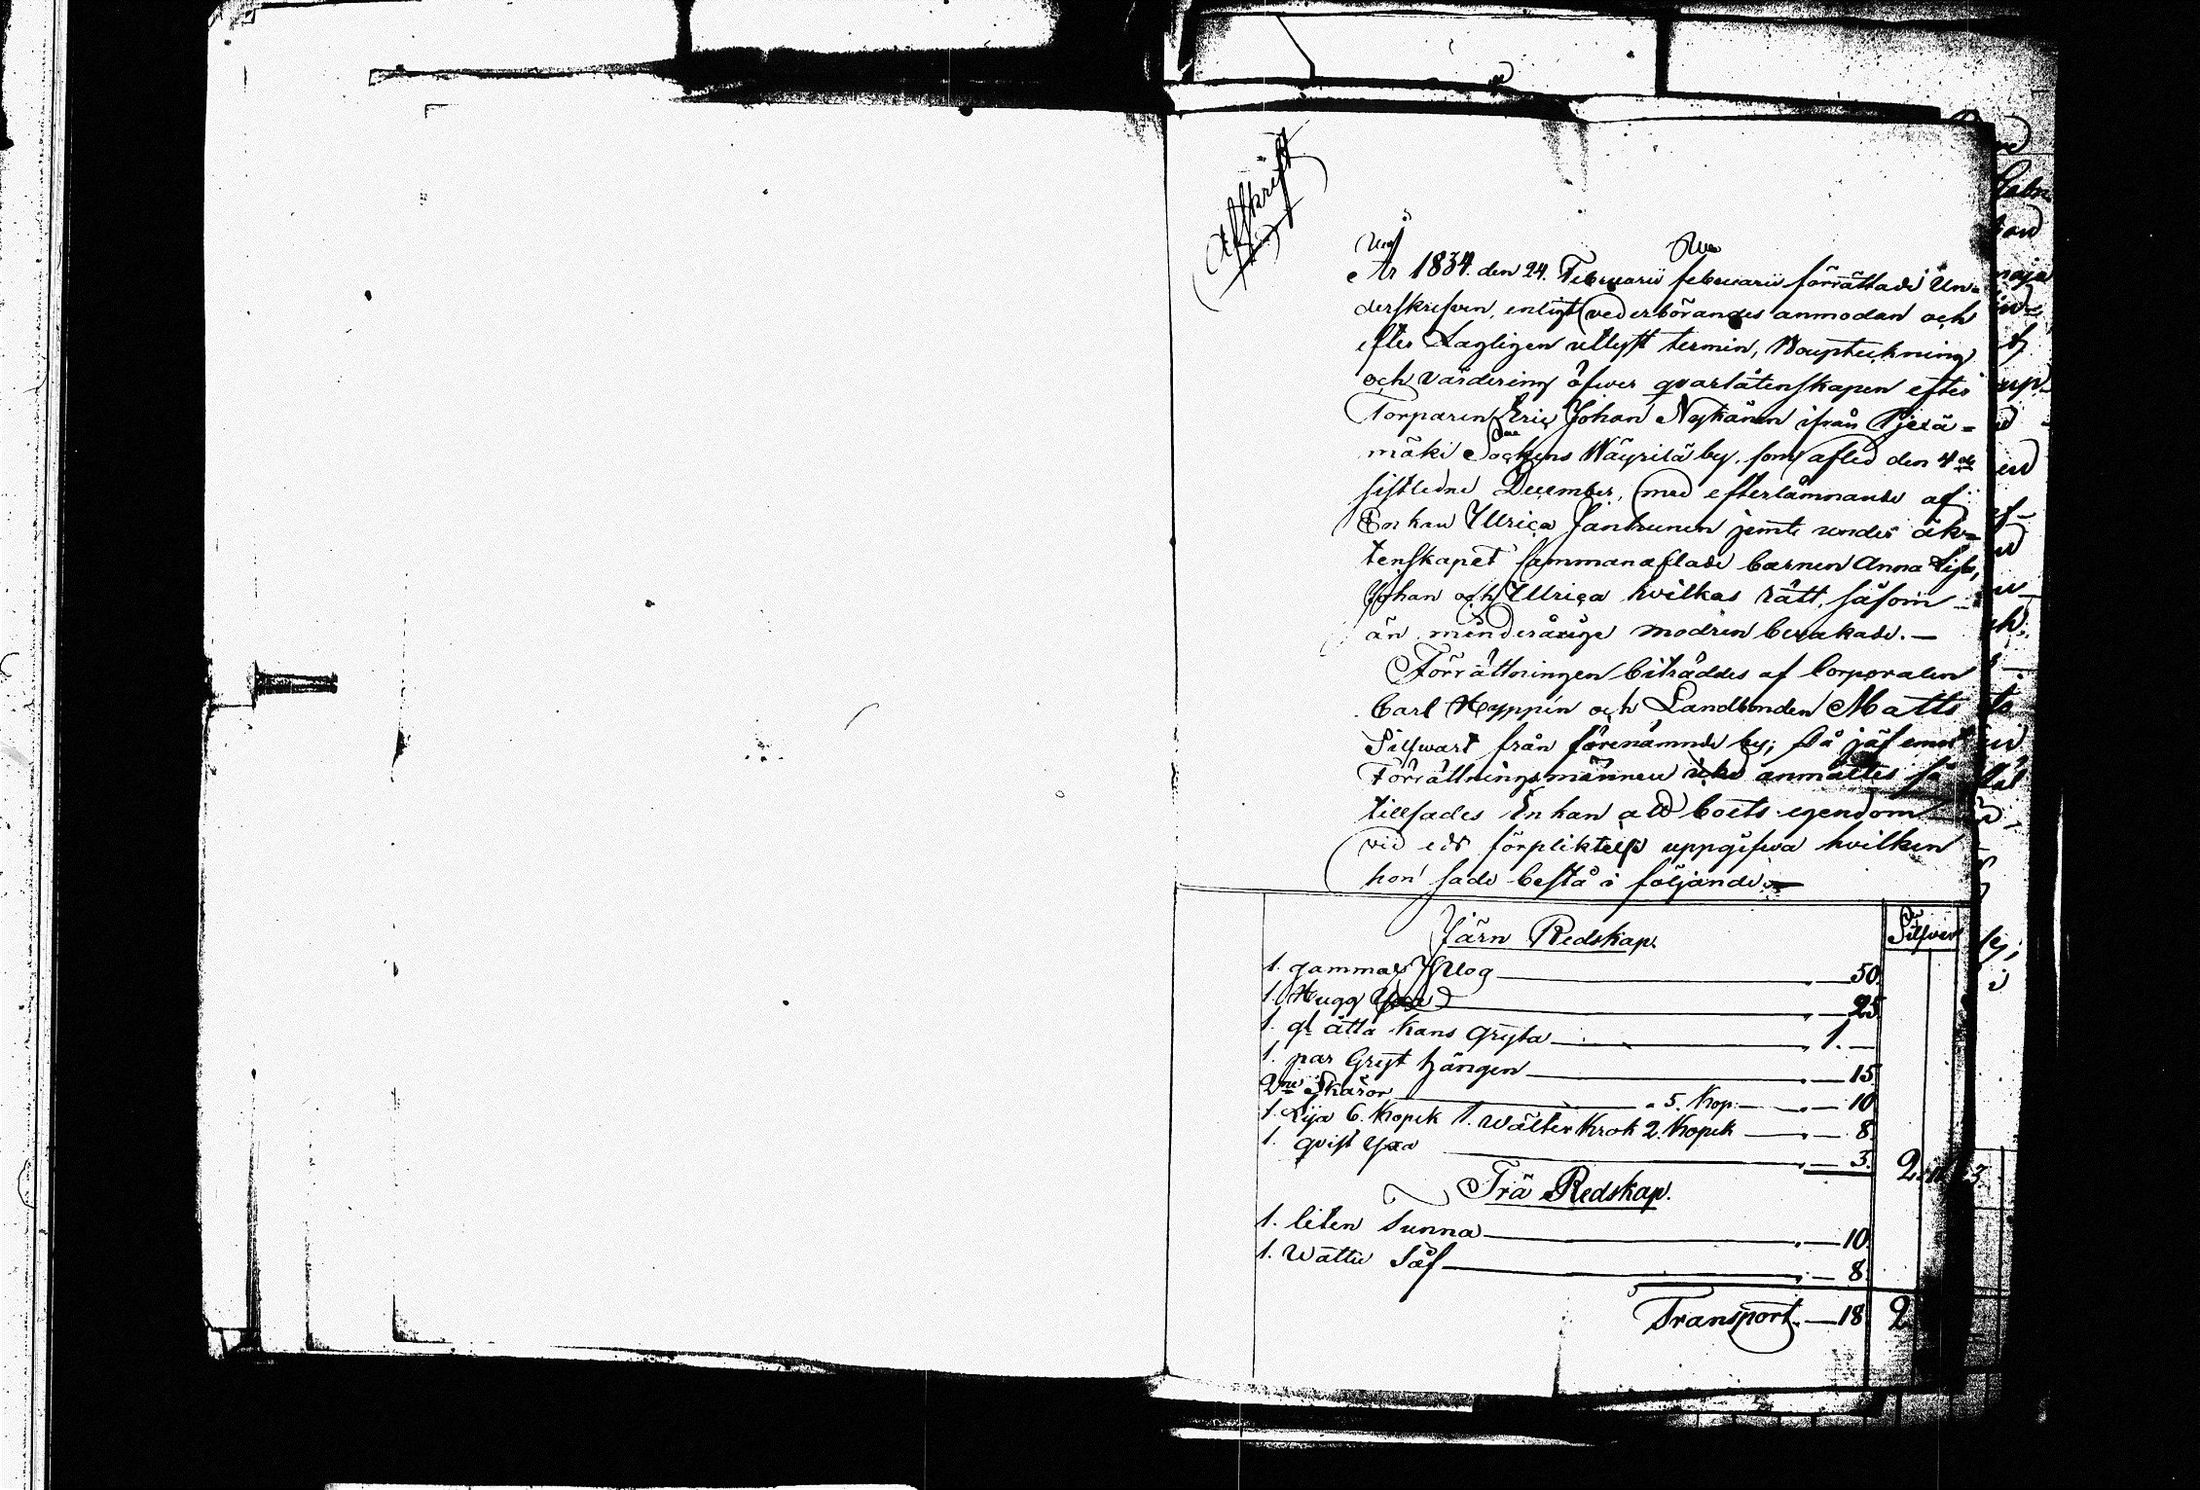 Afskrift
År 1834. den 24. Februarii februarii förrättade Un-
derskrifven, enligt vederbörandes anmodan och
efter Lagligen utlyst termin, Bouptekning
och värdering öfwer qvarlåtenskapen efter
Torparen Eric Johan Nykänen ifrån Pjexä-
mäki Sockens Wäyrilä by, som afled den 4de
sistledne December, med efterlämnande af
Enkan Ulrica Janhunen jemte under äk-
tenskapet sammanaflade barnen Anna Lisa,
Johan och Ulrica hvilkas rätt, såsom
än minderårige modren bevakade. —
Förrättningen biträddes af Corporalen
Carl Hyppin och Landbonden Matts
Silfwast från förenämnde by; då jäf emot
Förrättningsmännen icke anmältes så
tillsades Enkan all boets egendom
vid eds förpliktelse uppgifwa hvilken
hon sade bestå i följande. —
Järn Redskap. Silfwer
1. gammal Plog — . — 50.
1. Hugg Yxa — . — 25
1. gl åtta kans Gryta — 1. —
1. par Gryt hängen — . — 15
2ne Skäror — " 5. Kop. — . — 10
1. Lija 6. Kopek 1. Wälter Krok 2. Kopek — . — 8.
1. qvist Yxa — . — 3. 2
Trä Redskap.
1. liten Tunna — . — 10
1. Wattu Såf — . — 8.
Transport. — 18. 2